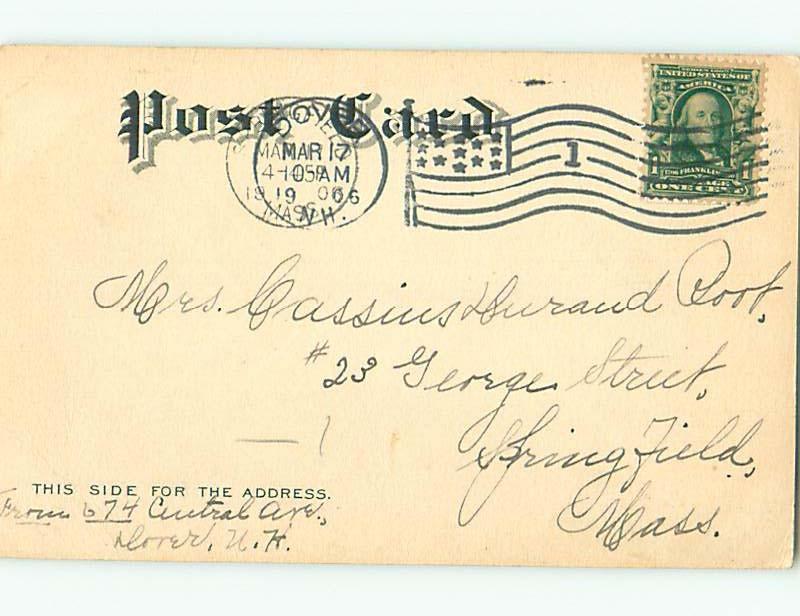 Post Card
DOVER
MAR 17
AM
1906
N.H.
MASS
1
SERIES 1902
UNITED STATES OF
AMERICA
1 FRANKLIN 1
ONE CENT
Mrs. Cassius Durand Root,
#23 George Street,
Springfield,
Mass.
THIS SIDE FOR THE ADDRESS.
From 674 Central Ave.,
Dover, N.H.